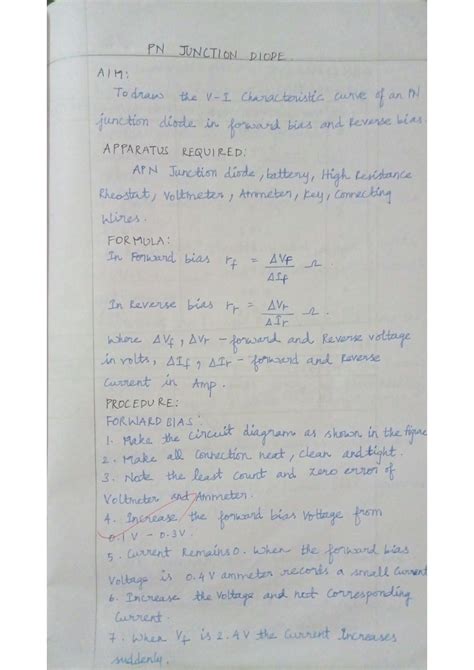 PN JUNCTION DIODE.
AIM:
To draw the V-I Characteristic curve of an PN
junction diode in forward bias and Reverse bias.
APPARATUS REQUIRED:
A PN Junction diode, battery, High Resistance
Rheostat, Voltmeter, Ammeter, Key, Connecting
Wires.
FORMULA:
In Forward bias rf = ΔVf / ΔIf Ω
In Reverse bias rr = ΔVr / ΔIr Ω.
Where ΔVf, ΔVr - forward and Reverse voltage
in volts, ΔIf, ΔIr - forward and Reverse
Current in Amp.
PROCEDURE:
FORWARD BIAS:
1. Make the circuit diagram as shown in the figure
2. Make all Connection neat, clean and tight.
3. Note the least count and zero error of
Voltmeter and Ammeter.
4. Increase the forward bias voltage from
0.1V - 0.3V.
5. Current Remains 0. When the forward bias
Voltage is 0.4V ammeter records a small Current
6. Increase the Voltage and Corresponding
Current.
7. When Vf is 2.4V the Current Increases
suddenly.